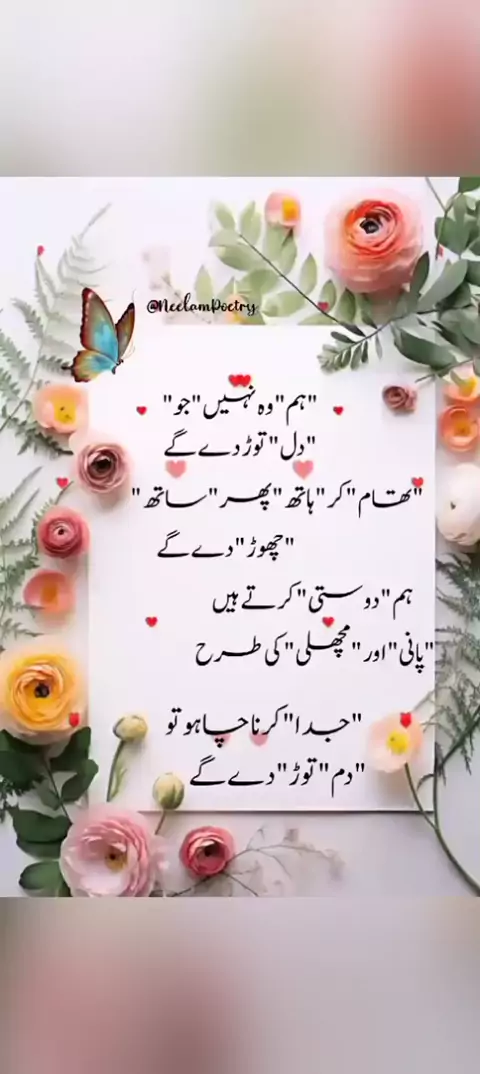 @NeelamPoetry
"ہم"وہ نہیں"جو"
"دل"توڑ دے گے
"تھام"کر"ہاتھ"پھر"ساتھ"
"چھوڑ"دے گے
ہم"دوستی"کرتے ہیں
"پانی"اور"مچھلی"کی طرح
"جدا"کرنا چاہو تو
"دم"توڑ"دے گے